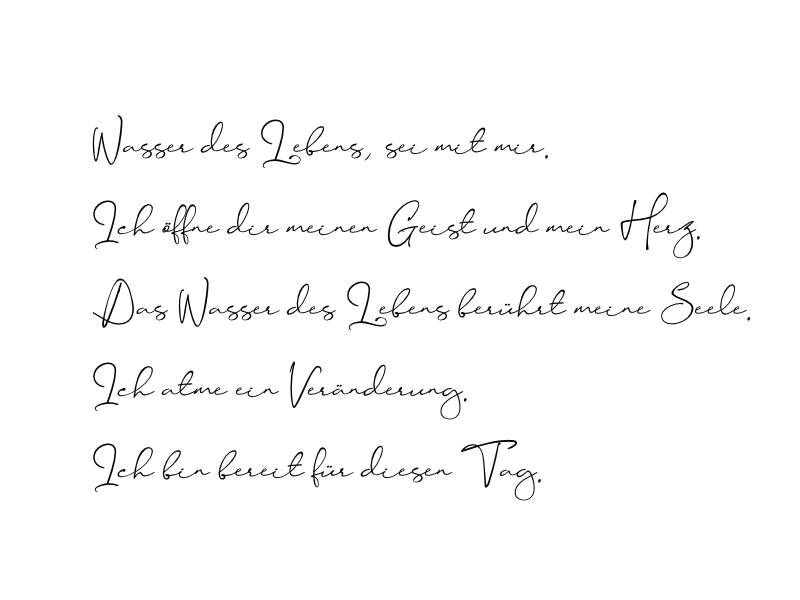 Wasser des Lebens, sei mit mir.
Ich öffne dir meinen Geist und mein Herz.
Das Wasser des Lebens berührt meine Seele.
Ich atme ein Veränderung.
Ich bin bereit für diesen Tag.